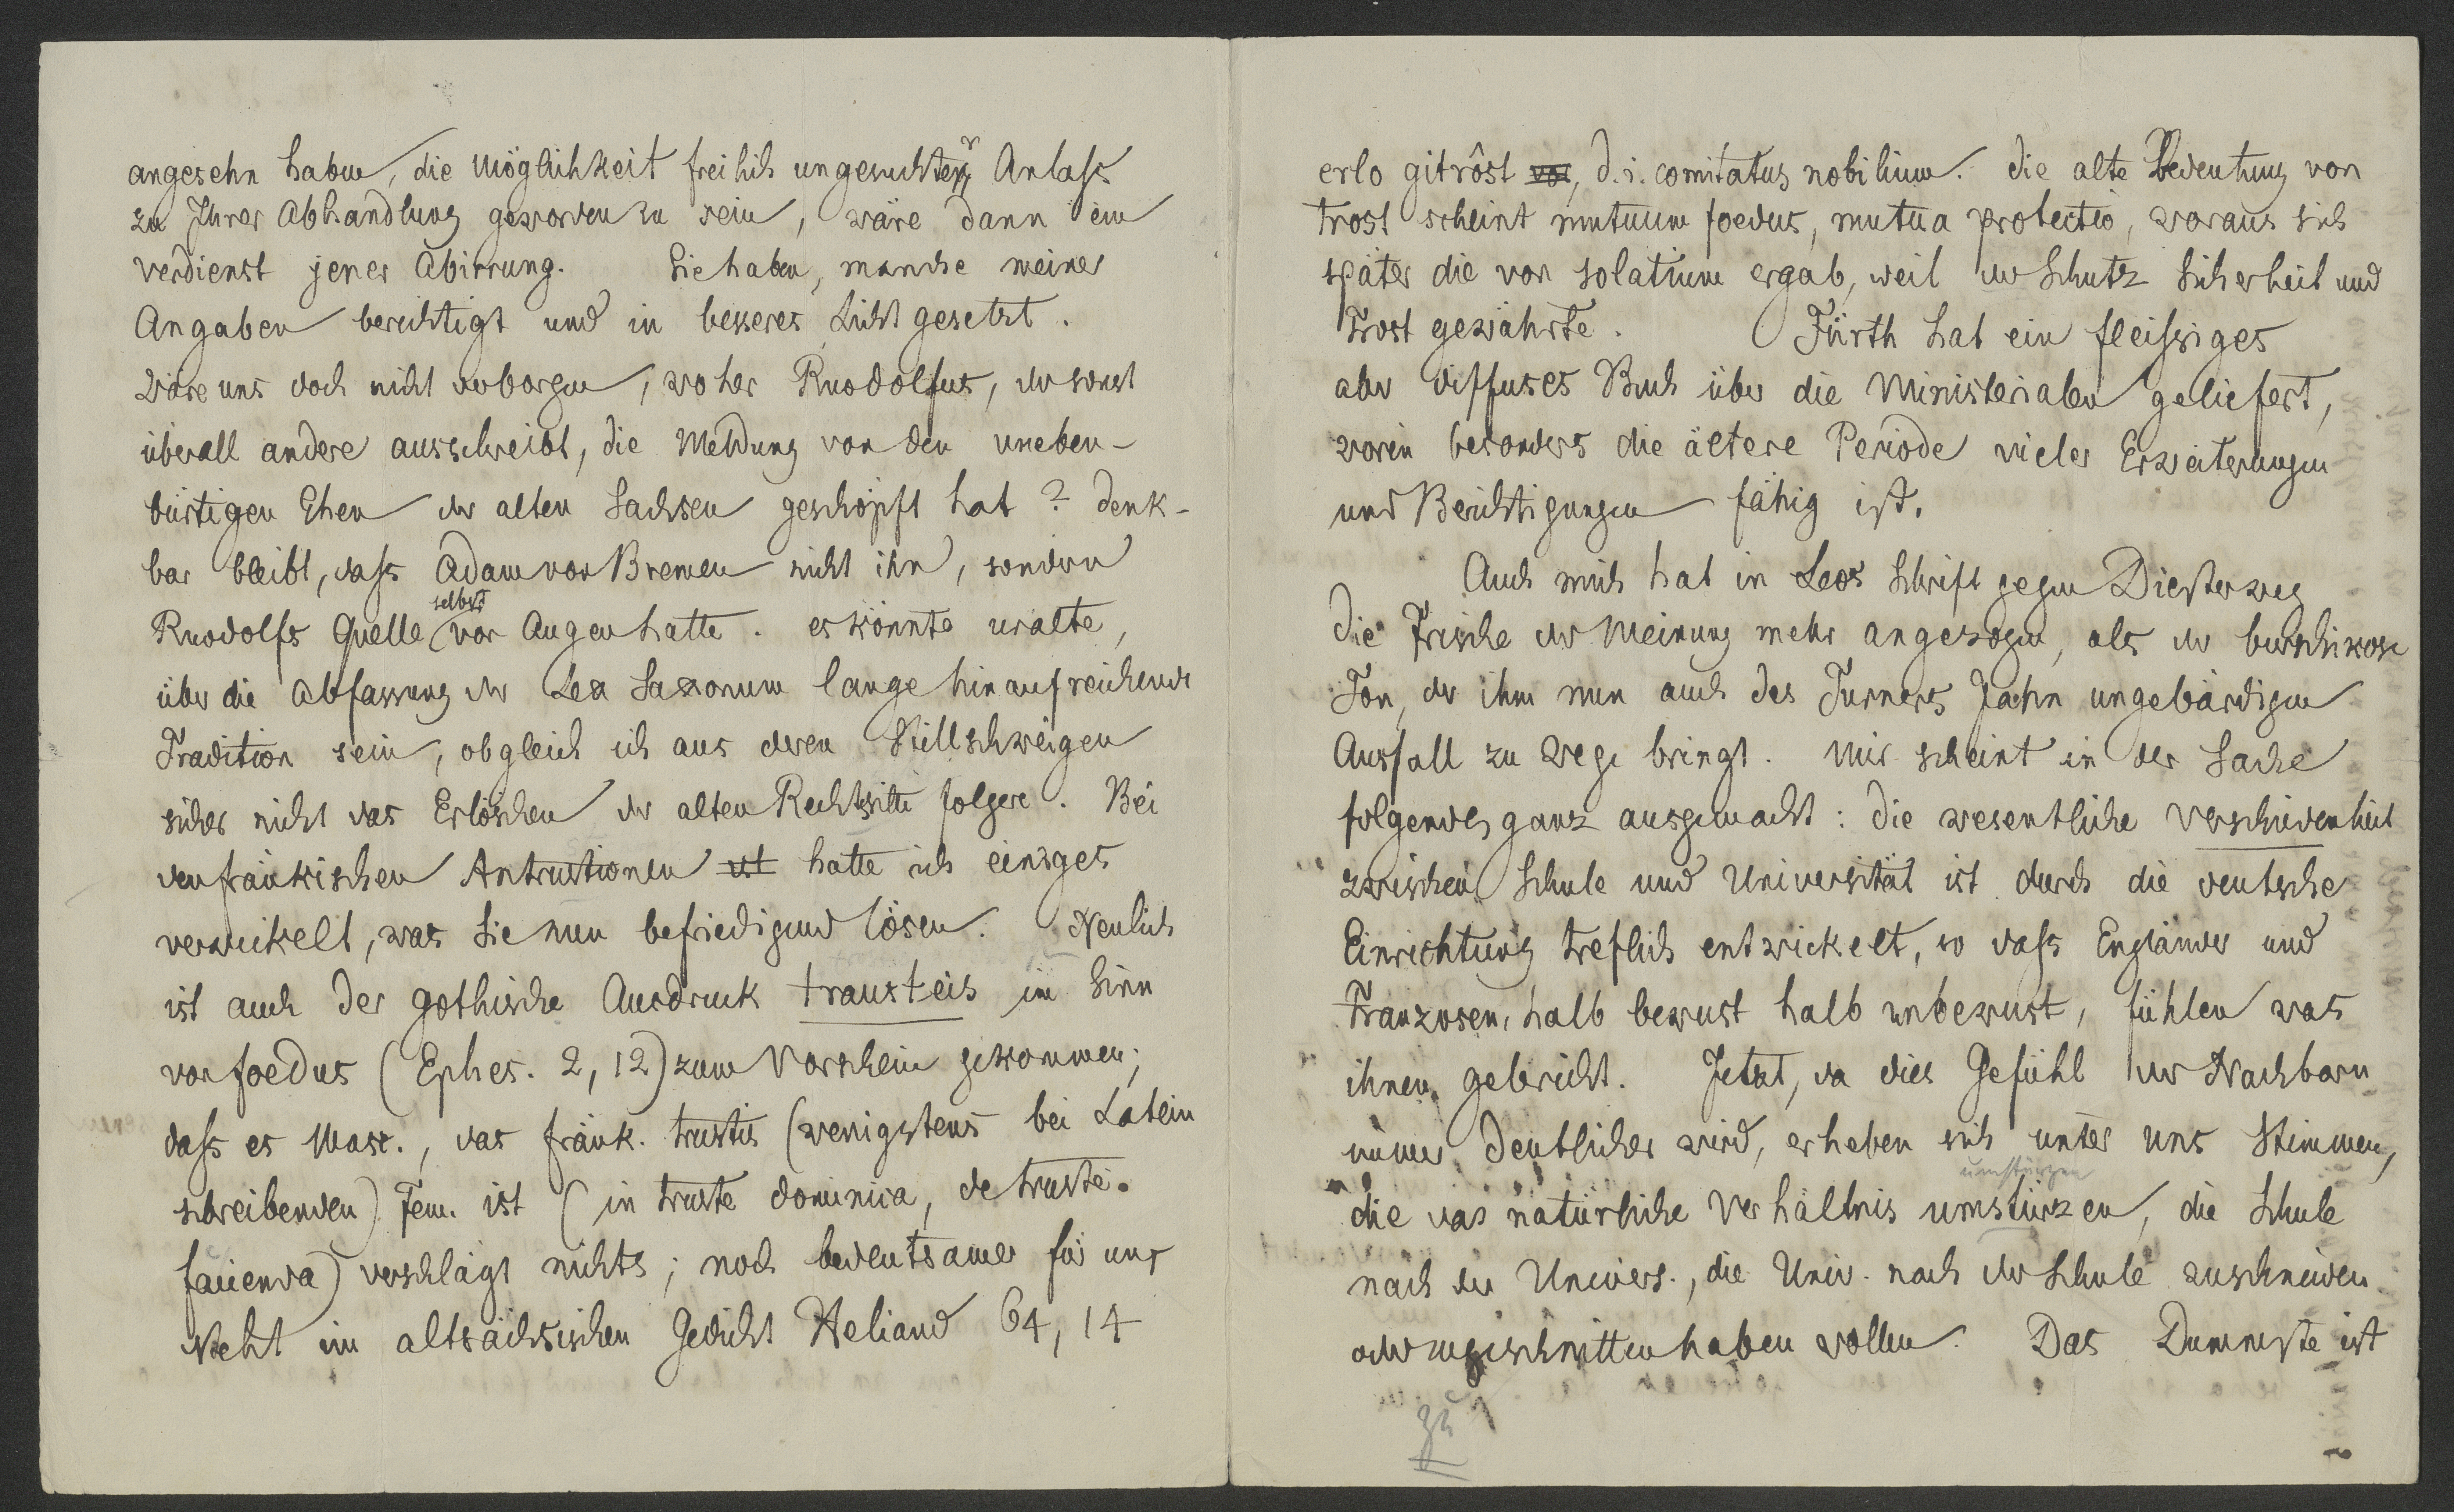 angesehn haben, die Möglichkeit freilich ungesuchter Anlaſs
zu Ihrer Abhandlung geworden zu sein, wäre dann ein
verdienst jener Abirrung. Sie haben, manche meiner
Angaben berichtigt und in besseres Licht gesetzt.
Wäre uns doch nicht verborgen, woher Ruodolfus, der sonst
überall andere ausschreibt, die Meldung von den uneben-
bürtigen Ehen der alten Sachsen geschöpft hat? denk-
bar bleibt, daſs Adam von Bremen nicht ihn, sondern
Ruodolfs Quelle selbst vor Augen hatte. es könnte uralte,
über die Abfassung der Lex Saxonum lange hinaufreichende
Tradition sein, obgleich ich aus deren Stillschweigen
sicher nicht das Erlöschen der alten Rechtssitte folgere. Bei
den fränkischen Antrustionen ist hatte ich einiges
verwickelt, was Sie nun befriedigend lösen. Neulich
ist auch der gothische Ausdruck trausteis im Sinn
von foedus (Ephes. 2, 12) zum Vorschein gekommen;
daſs es Masc., das fränk. trustis (wenigstens bei Latein
schreibenden) Fem. ist (in truste dominica, de truste
facienda) verschlägt nichts; noch bedeutsamer für uns
steht im altsächsischen Gedicht Heliand 64, 14
erlo gitrôst vor, d. i. comitatus nobilium. die alte Bedeutung von
trost scheint mutuum foedus, mutua protectio, woraus sich
später die von solatium ergab, weil der Schutz Sicherheit und
Trost gewährte. Fürth hat ein fleiſsiges
aber diffuses Buch über die Ministerialen geliefert,
worin besonders die ältere Periode vieler Erweiterungen
und Berichtigungen fähig ist.
Auch mich hat in Leos Schrift gegen Diesterweg
die Frische der Meinung mehr angezogen, als der burschikose
Ton, der ihm nun auch des Turners Jahn ungebärdigen
Ausfall zu Wege bringt. Mir scheint in der Sache
folgendes ganz ausgemacht: die wesentliche Verschiedenheit
zwischen Schule und Universität ist durch die deutsche
Einrichtung treflich entwickelt, so daſs Engländer und
Franzosen, halb bewust halb unbewust, fühlen was
ihnen gebricht. Jetzt, da dies Gefühl der Nachbarn
immer deutlicher wird, erheben sich unter uns Stimmen,
umstürzen
die das natürliche Verhältnis umstürzen, die Schule
nach der Univers., die Univ. nach der Schule zuschneiden
oder zugeschnitten haben wollen. Das Dummste ist
zu